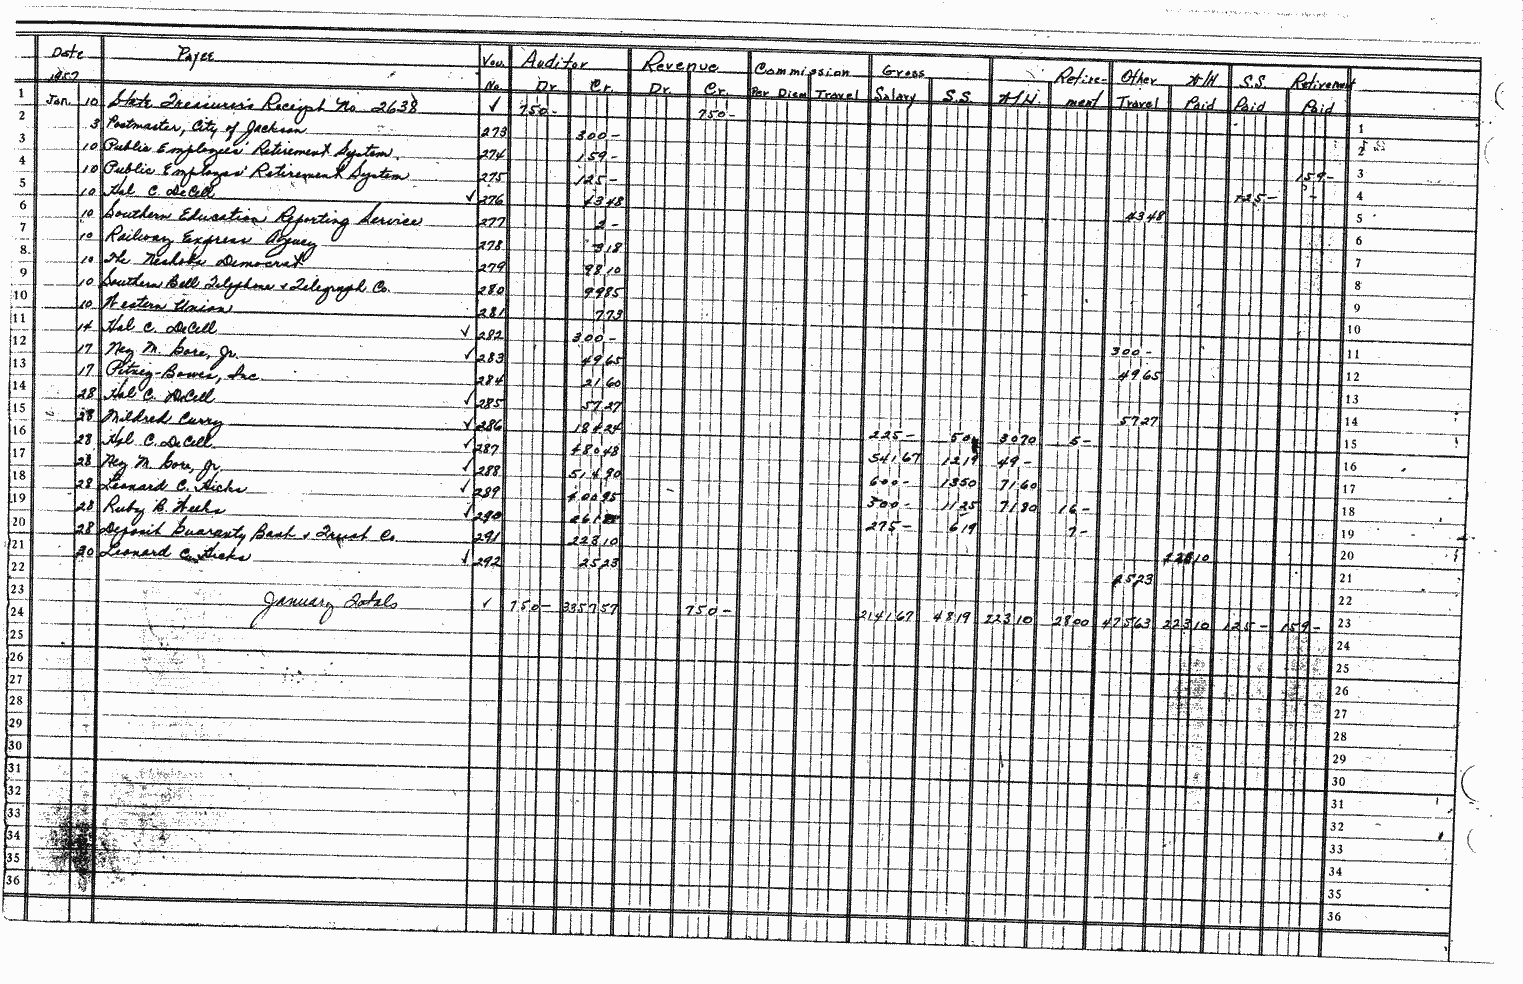 Date Payee Vou. Auditor Revenue Commission Gross Retire- Other W/H S.S. Retirement
1957 No. Dr. Cr. Dr. Cr. Per Diem Travel Salary S.S. W/H. ment Travel Paid Paid Paid
1 Jan. 10 State Treasurer's Receipt No. 2638 ✓ 750- 750- 1
2 3 Postmaster, City of Jackson 273 300- 2
3 10 Public Employees' Retirement System 274 159- 159- 3
4 10 Public Employees' Retirement System 275 125- 125- - 4
5 10 Hal C. DeCell ✓ 276 4348 4348 5
6 10 Southern Education Reporting Service 277 2- 6
7 10 Railway Express Agency 278 318 7
8 10 The Neshoba Democrat 279 9810 8
9 10 Southern Bell Telephone & Telegraph Co. 280 9985 9
10 10 Western Union 281 773 10
11 14 Hal C. DeCell ✓ 282 300- 300- 11
12 17 Ney M. Gore, Jr. ✓ 283 4965 4965 12
13 17 Pitney-Bowes, Inc 284 2160 13
14 28 Hal C. DeCell ✓ 285 5727 5727 14
15 28 Mildred Curry ✓ 286 18424 225- 3070 5- 15
16 28 Hal C. DeCell ✓ 287 48048 54167 1219 49- 16
17 28 Ney M. Gore, Jr. ✓ 288 51490 600- 1350 7160 17
18 28 Leonard C. Hicks ✓ 289 40095 500- 1125 7180 16- 18
19 28 Ruby B. Weeks ✓ 290 275- 619 7- 19
20 28 Deposit Guaranty Bank & Trust Co. 291 22310 22310 20
21 30 Leonard C. Hicks ✓ 292 2523 2523 21
22 22
23 January Totals ✓ 750- 335757 750- 214167 4819 22310 2800 47563 22310 125- 159- 23
24 24
25 25
26 26
27 27
28 28
29 29
30 30
31 31
32 32
33 33
34 34
35 35
36 36